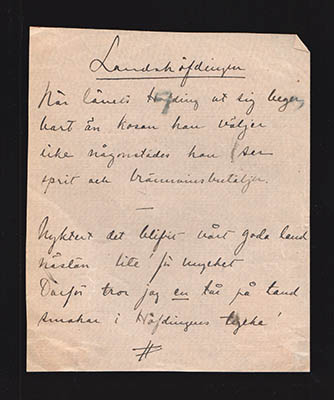 Landshöfdingen
När länets Höfding ut sig beger
hvart än kosan han väljer
icke någonstädes han ser
sprit och brännvinsbetäljer.
—
Nyktert det blifvit vårt goda land
nästan lite' för mycket
Därför tror jag en tår på tand
smakar i Höfdingens tycke!